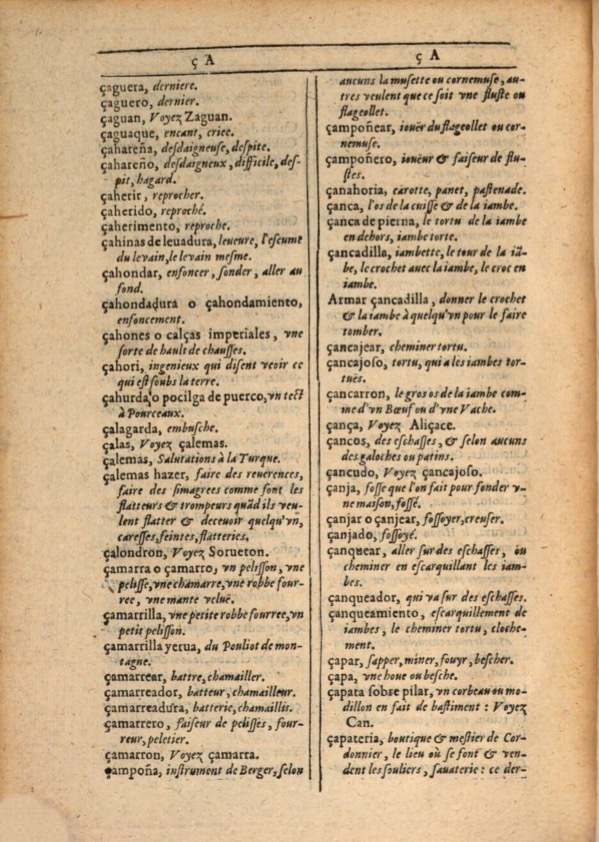 ç A
çaguera, derniere.
çaguero, dernier.
çaguan, Voyez Zaguan.
çaguaque, encant, criee.
çahareña, desdaigneuse, despite.
çahareño, desdaigneux, difficile, des-
pit, hagard.
çaherir, reprocher.
çaherido, reproché.
çaherimento, reproche.
çahinas de leuadura, leueure, l'escume
du levain, le levain mesme.
çahondar, enfoncer, fonder, aller au
fond.
çahondadura o çahondamiento,
enfoncement.
çahones o calças imperiales, vne
sorte de hault de chausses.
çahori, ingenieux qui disent veoir ce
qui est soubs la terre.
çahurda, o pocilga de puerco, vn tect
à Pourceaux.
çalagarda, embusche.
çalas, Voyez çalemas.
çalemas, Salutations à la Turque.
çalemas hazer, faire des reuerences,
faire des simagrees comme font les
flatteurs & trompeurs quãd ils veu-
lent flatter & deceuoir quelqu'vn,
caresses, feintes, flatteries.
çalondron, Voyez Sorueton.
çamarra o çamarro, vn pelisson, vne
pelisse, vne chamarre, vne robbe four-
ree, vne mante veluë.
çamarrilla, vne petite robbe fourree, vn
petit pelisson.
çamarrilla yerua, du Pouliot de mon-
tagne.
çamarrear, battre, chamailler.
çamarreador, batteur, chamailleur.
çamarreadura, batterie, chamaillis.
çamarrero, faiseur de pelisses, four-
reur, peletier.
çamarron, Voyez çamarra.
çampoña, instrument de Berger, selon
ç A
aucuns la musette ou cornemuse, au-
tres veulent que ce soit vne fluste ou
flageollet.
çampoñear, iouër du flageollet ou cor-
nemuse.
çampoñero, ioueur & faiseur de flu-
stes.
çanahoria, carotte, panet, pastenade.
çanca, l'os de la cuisse & de la iambe.
çanca de pierna, le tortu de la iambe
en dehors, iambe torte.
çancadilla, iambette, le tour de la iã-
be, le crochet auec la iambe, le croc en
iambe.
Armar çancadilla, donner le crochet
& la iambe à quelqu'vn pour le faire
tomber.
çancajear, cheminer tortu.
çancajoso, tortu, qui a les iambes tor-
tuës.
çancarron, le gros os de la iambe com-
me d'vn Bœuf ou d'vne Vache.
çança, Voyez Aliçace.
çancos, des eschasses, & selon aucuns
des galoches ou patins.
çancudo, Voyez çancajoso.
çanja, fosse que l'on fait pour fonder v-
ne maison, fossé.
çanjar o çanjear, fossoyer, creuser.
çanjado, fossoyé.
çanquear, aller sur des eschasses, ou
cheminer en escarquillant les iam-
bes.
çanqueador, qui va sur des eschasses.
çanqueamiento, escarquillement de
iambes, le cheminer tortu, cloche-
ment.
çapar, sapper, miner, fouyr, bescher.
çapa, vne houe ou besche.
çapata sobre pilar, vn corbeau ou mo-
dillon en fait de bastiment : Voyez
Can.
çapateria, boutique & mestier de Cor-
donnier, le lieu où se font & ven-
dent les souliers, sauaterie : ce der-